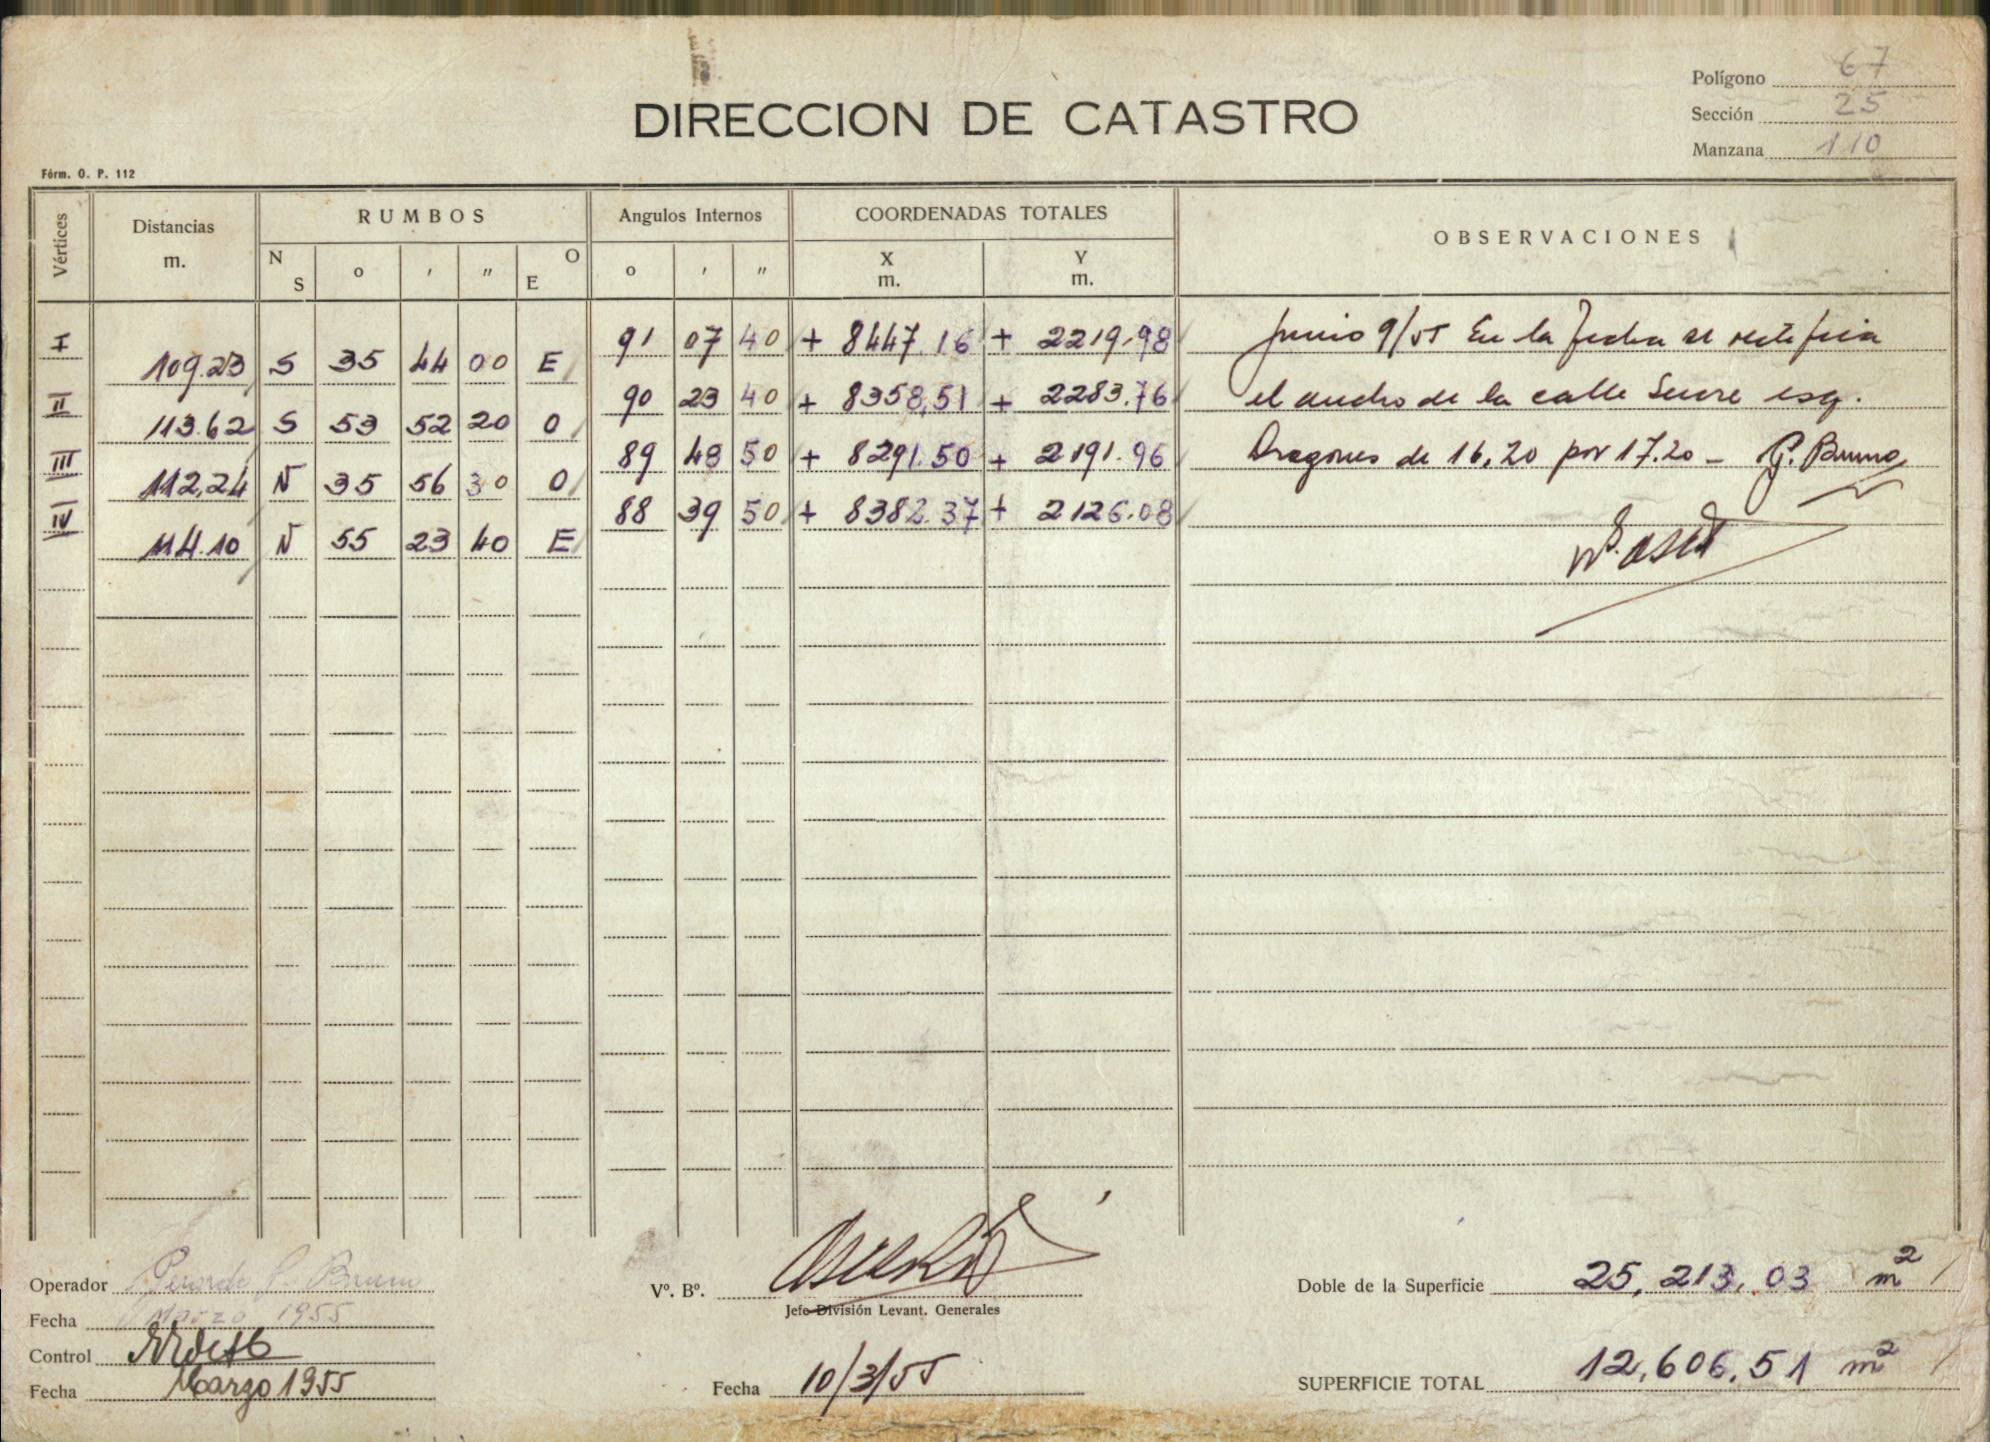 Polígono 67
DIRECCION DE CATASTRO
Sección 25
Manzana 110
Fórm. O. P. 112
Vértices Distancias m. RUMBOS Angulos Internos COORDENADAS TOTALES OBSERVACIONES
N S o ' " E O o ' " X m. Y m.
I 91 07 40 + 8447.16 + 2219.98 Junio 9/55 En la fecha se rectifica
109.23 S 35 44 00 E
II 90 23 40 + 8358,51 + 2283.76 el ancho de la calle Sucre esq.
113.62 S 53 52 20 O
III 89 48 50 + 8291.50 + 2191.96 Dragones de 16,20 por 17.20 - P. Bruno
112,24 N 35 56 30 O
IV 88 39 50 + 8382.37 + 2126.08
114.10 N 55 23 40 E
Operador P. Bruno
Fecha Marzo 1955
Control
Fecha Marzo 1955
Vº. Bº.
Jefe División Levant. Generales
Fecha 10/3/55
Doble de la Superficie 25,213,03 m²
SUPERFICIE TOTAL 12,606,51 m²